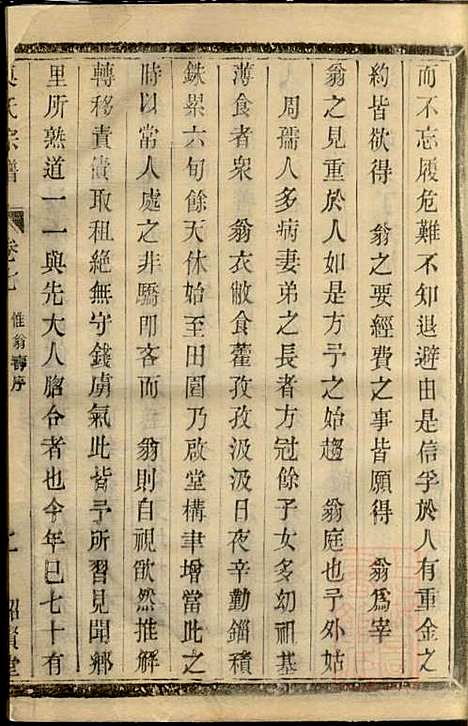 而不忘履危難不知退避由是信孚於人有重金之
約皆欲得　翁之要經費之事皆願得　翁為宰
翁之見重於人如是方予之始趨　翁庭也予外姑
周孺人多病妻弟之長者方冠餘子女多幼祖基
薄食者衆　翁衣敝食藿孜孜汲汲日夜辛勤錙積
銖累六旬餘天休始至田園乃啟堂構聿增當此之
時以常人處之非驕即吝而　翁則自視欿然推解
轉移責債取租絕無守錢虜氣此皆予所習見聞鄉
里所熟道一一與先大人脗合者也今年已七十有
氏宗譜
卷七
惟翁壽序
七
紹賢堂